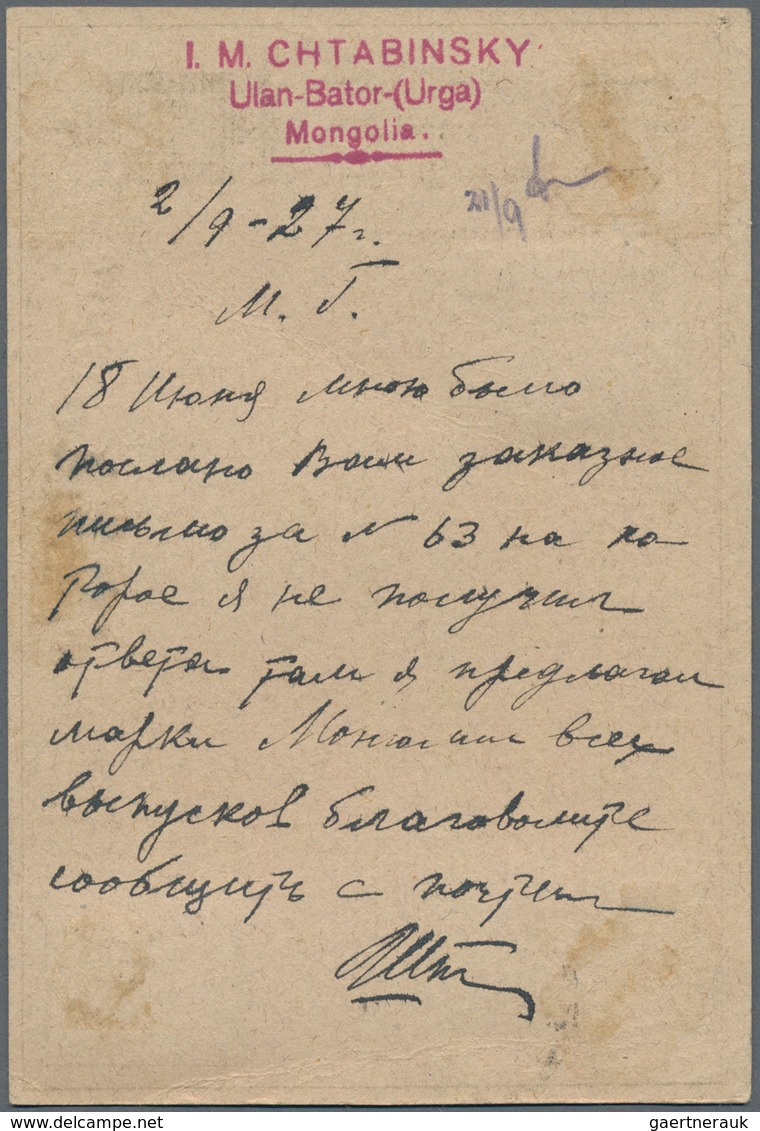 I. M. CHTABINSKY
Ulan-Bator-(Urga)
Mongolia.
2/9-27 г.
21/9
М. Г.
18 Июня мною было
послано Вам заказное
письмо за № 63 на ко
торое я не получил
ответа там я предлагал
марки Монголии всех
выпусков благоволите
сообщить с почтен
gaertnerauk